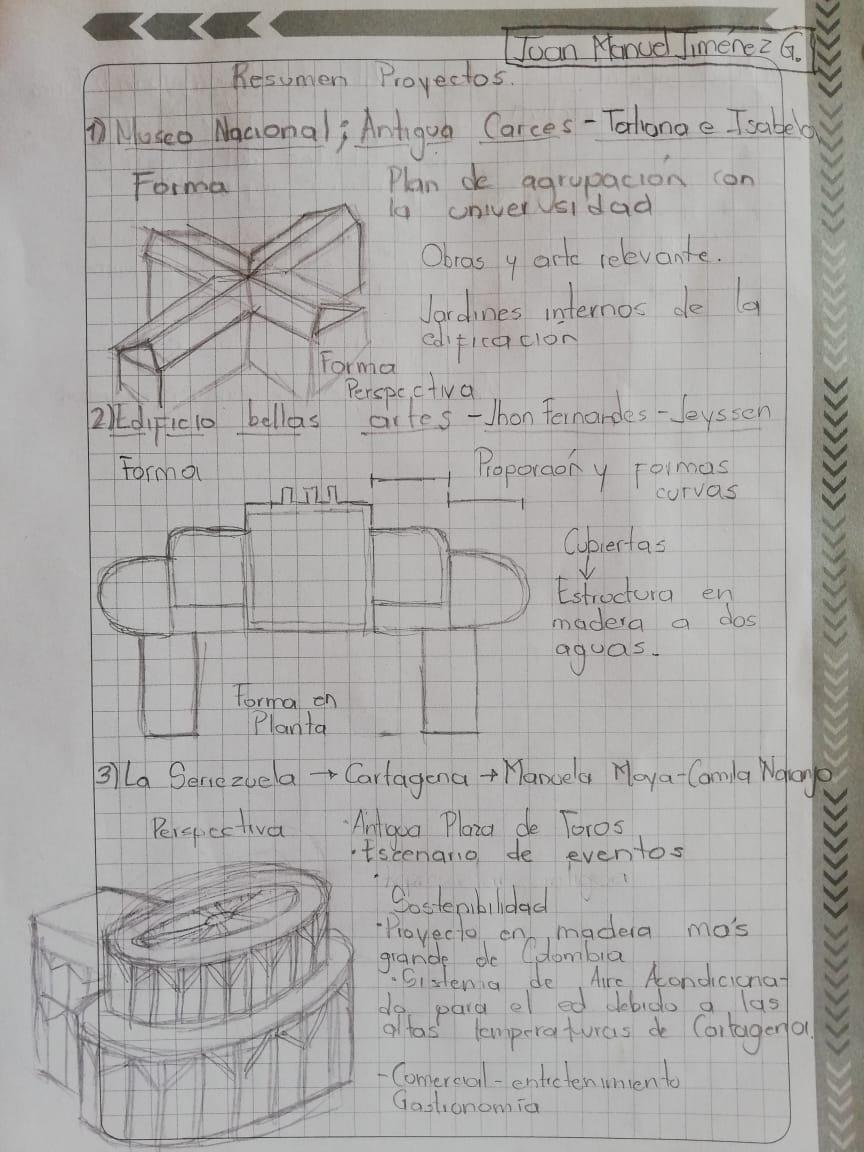 Juan Manuel Jiménez G.
Resumen Proyectos.
1) Museo Nacional; Antigua Carces - Tatiana e Isabela
Forma
Plan de agrupación con
la univerusidad
Obras y arte relevante.
Jardines internos de la
edificación
Forma
Perspectiva
2) Edificio bellas artes - Jhon Fernandes - Jeyssen
Forma
Proporción y Formas
curvas
Cubiertas
↓
Estructura en
madera a dos
aguas.
Forma en
Planta
3) La Seriezuela → Cartagena → Manuela Moya - Camila Naranjo
Perspectiva
· Antigua Plaza de Toros
· Escenario de eventos
Sostenibilidad
· Proyecto en madera mas
grande de Colombia
· Sistema de Aire Acondiciona-
do para el ed debido a las
altas temperaturas de Cartagena.
- Comercial - entretenimiento
Gastronomía